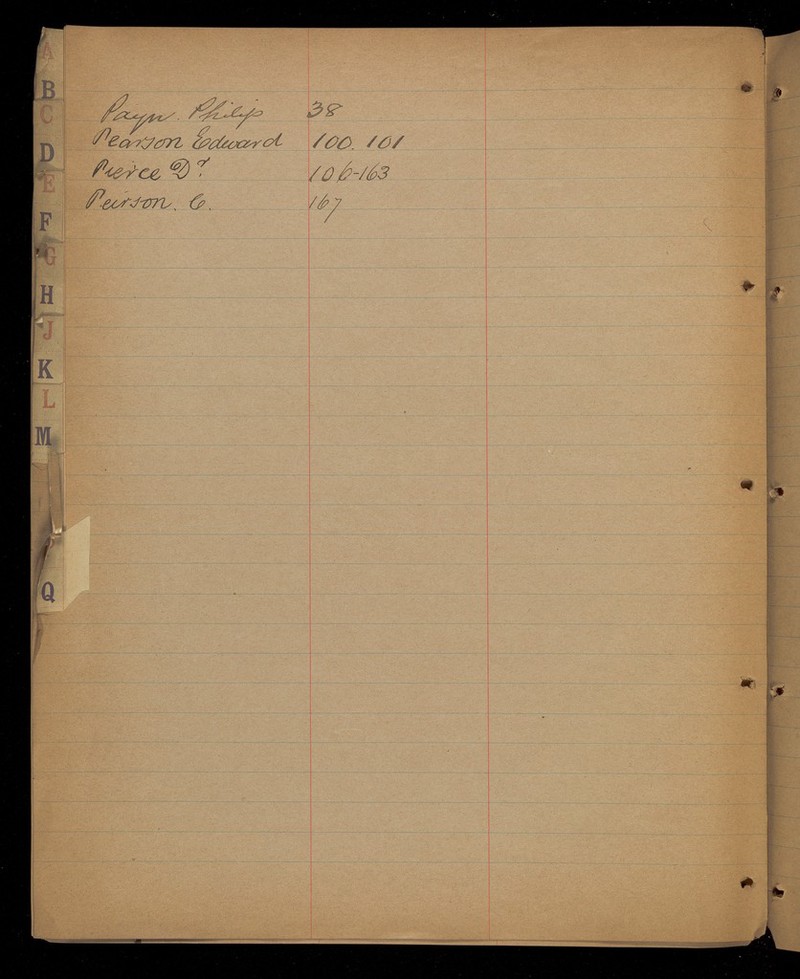 A
B
C
D
E
F
G
H
J
K
L
M
Q
Payn. Philip 38
Pearson Edward 100. 101
Pierce Dr. 106-163
Peirson. C. 167